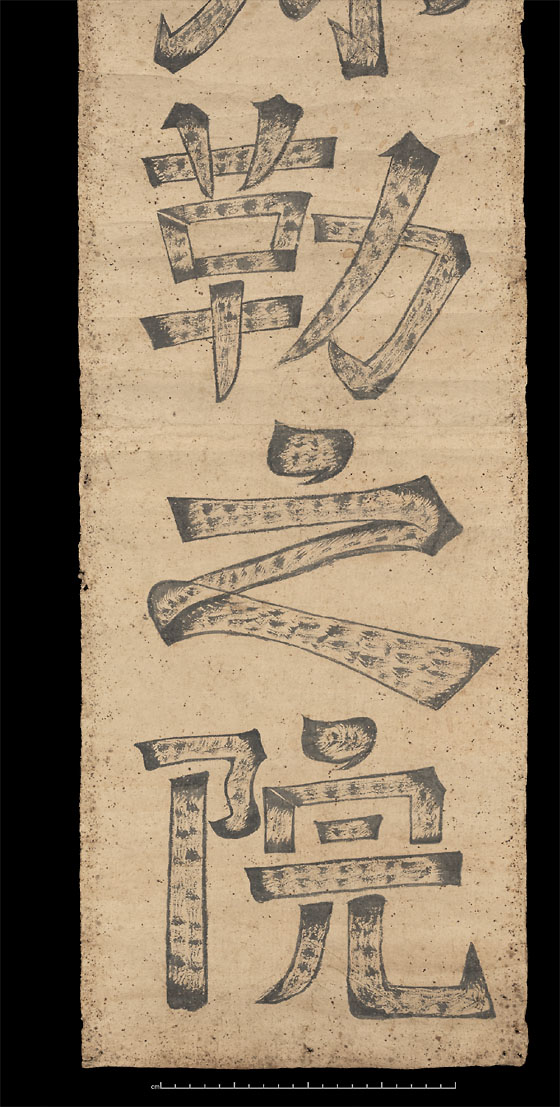 勒
之
院
cm